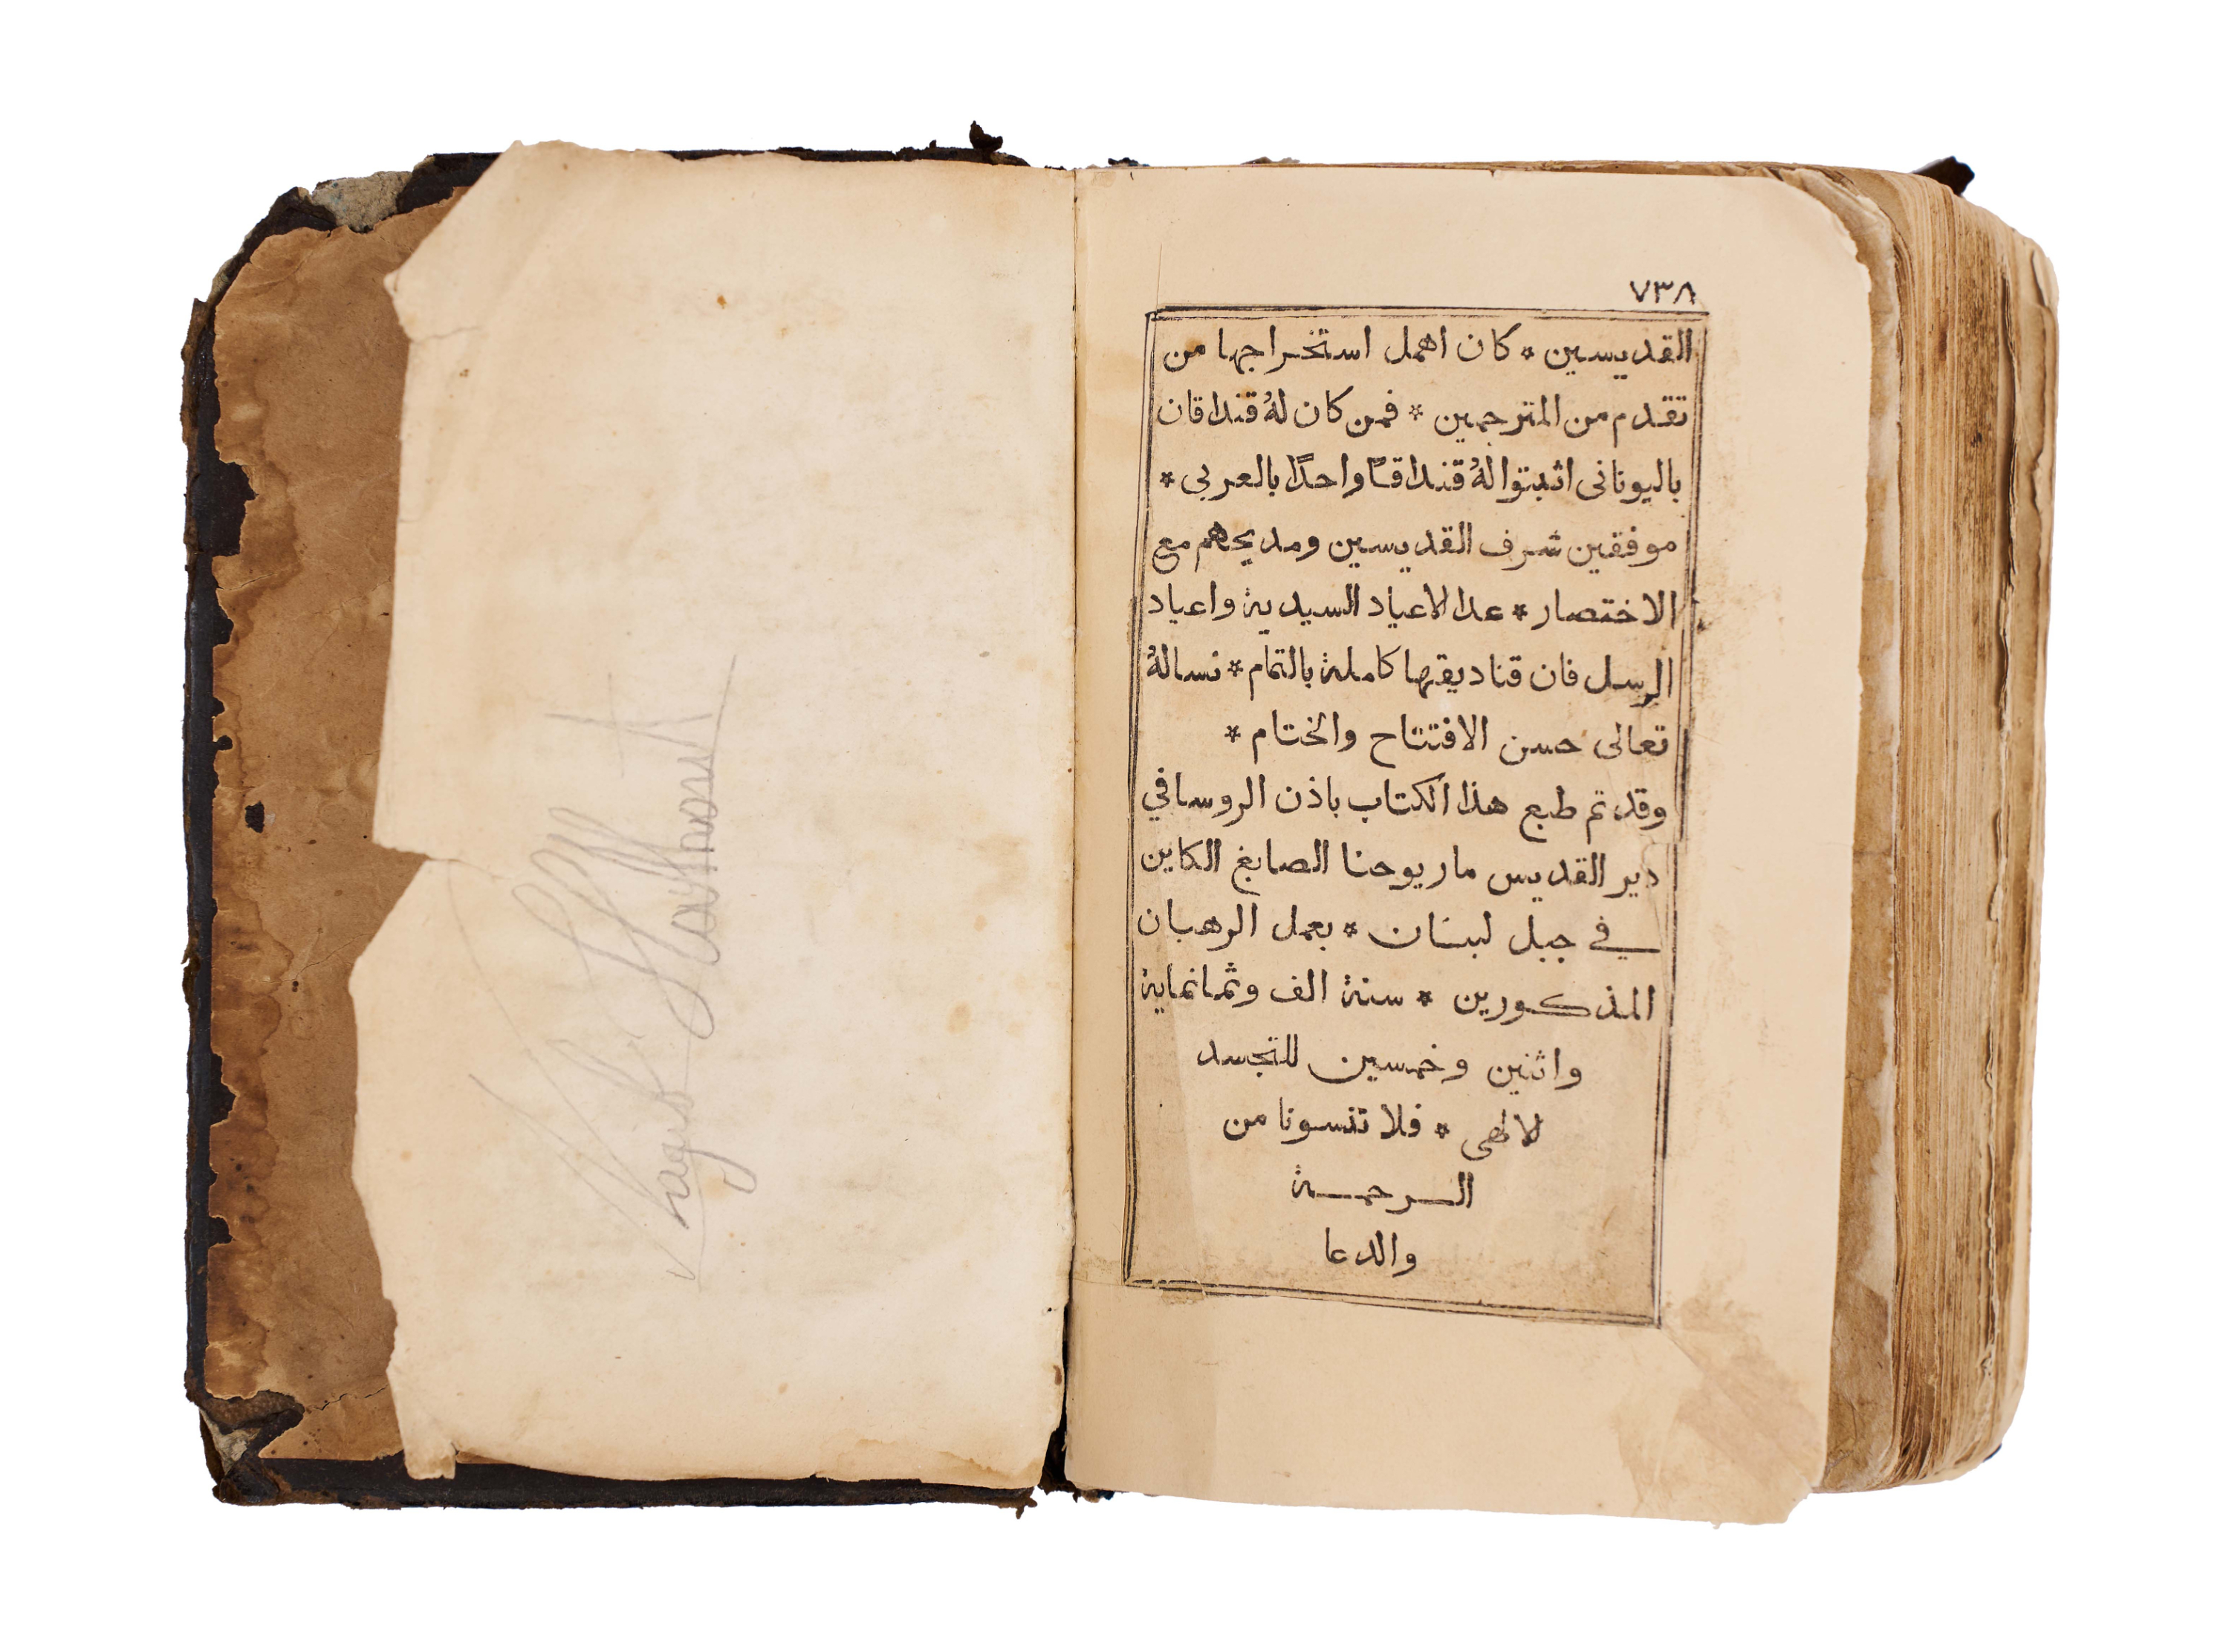 ٧٣٨
القديسين * كان اهمل استخراجها من
تقدم من المترجمين * فمن كان لهُ قنداقان
باليونانى اثبتوا لهُ قنداقـًا واحدًا بالعربى *
موفقين شرف القديسين ومديحهم مع
الاختصار * عدا الاعياد السيدية واعياد
الرسل فان قناديقها كاملة بالتمام * نسالهُ
تعالى حسن الافتتاح والختام *
وقد تم طبع هذا الكتاب باذن الروسا في
دير القديس مار يوحنا الصابغ الكاين
في جبل لبنان * بعمل الرهبان
المذكورين * سنة الف وثمانماية
واثنين وخمسين للتجسد
الالهى * فلا تنسونا من
الرحمة
والدعا